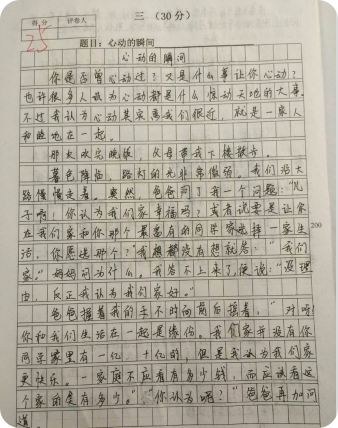 三 (30分)
得分 评卷人
25
题目：心动的瞬间
心动的瞬间
你是否曾心动过？又是什么事让你心动？
也许很多人认为心动都是什么惊动天地的大事。
不过我认为心动其实离我们很近，就是一家人
和睦地在一起。
那天吃完晚饭，父母带我下楼散步。
暮色降临，路灯的光非常微弱。我们沿大
路慢慢走着。突然，爸爸问了我一个问题："儿
子啊！你认为我们家幸福吗？或者说要是让你
在我们家和你那个最富有的同学家选择一家生
活，你愿选那个？"我想都没有想就答："我们
家。"妈妈问为什么，我答不上来了，便说："没理
由，反正我认为我们家好。"
200
爸爸摇着我们的手不时向前后摇着，"对哈！
你和我们生活在一起是缘份。我们家并没有你
同学家里有一亿、十亿的，但是我认为我们家
更快乐。一家庭不应看有多少钱，而应该看这
个家的爱有多少。""你认为呢？"爸爸再加问
道。